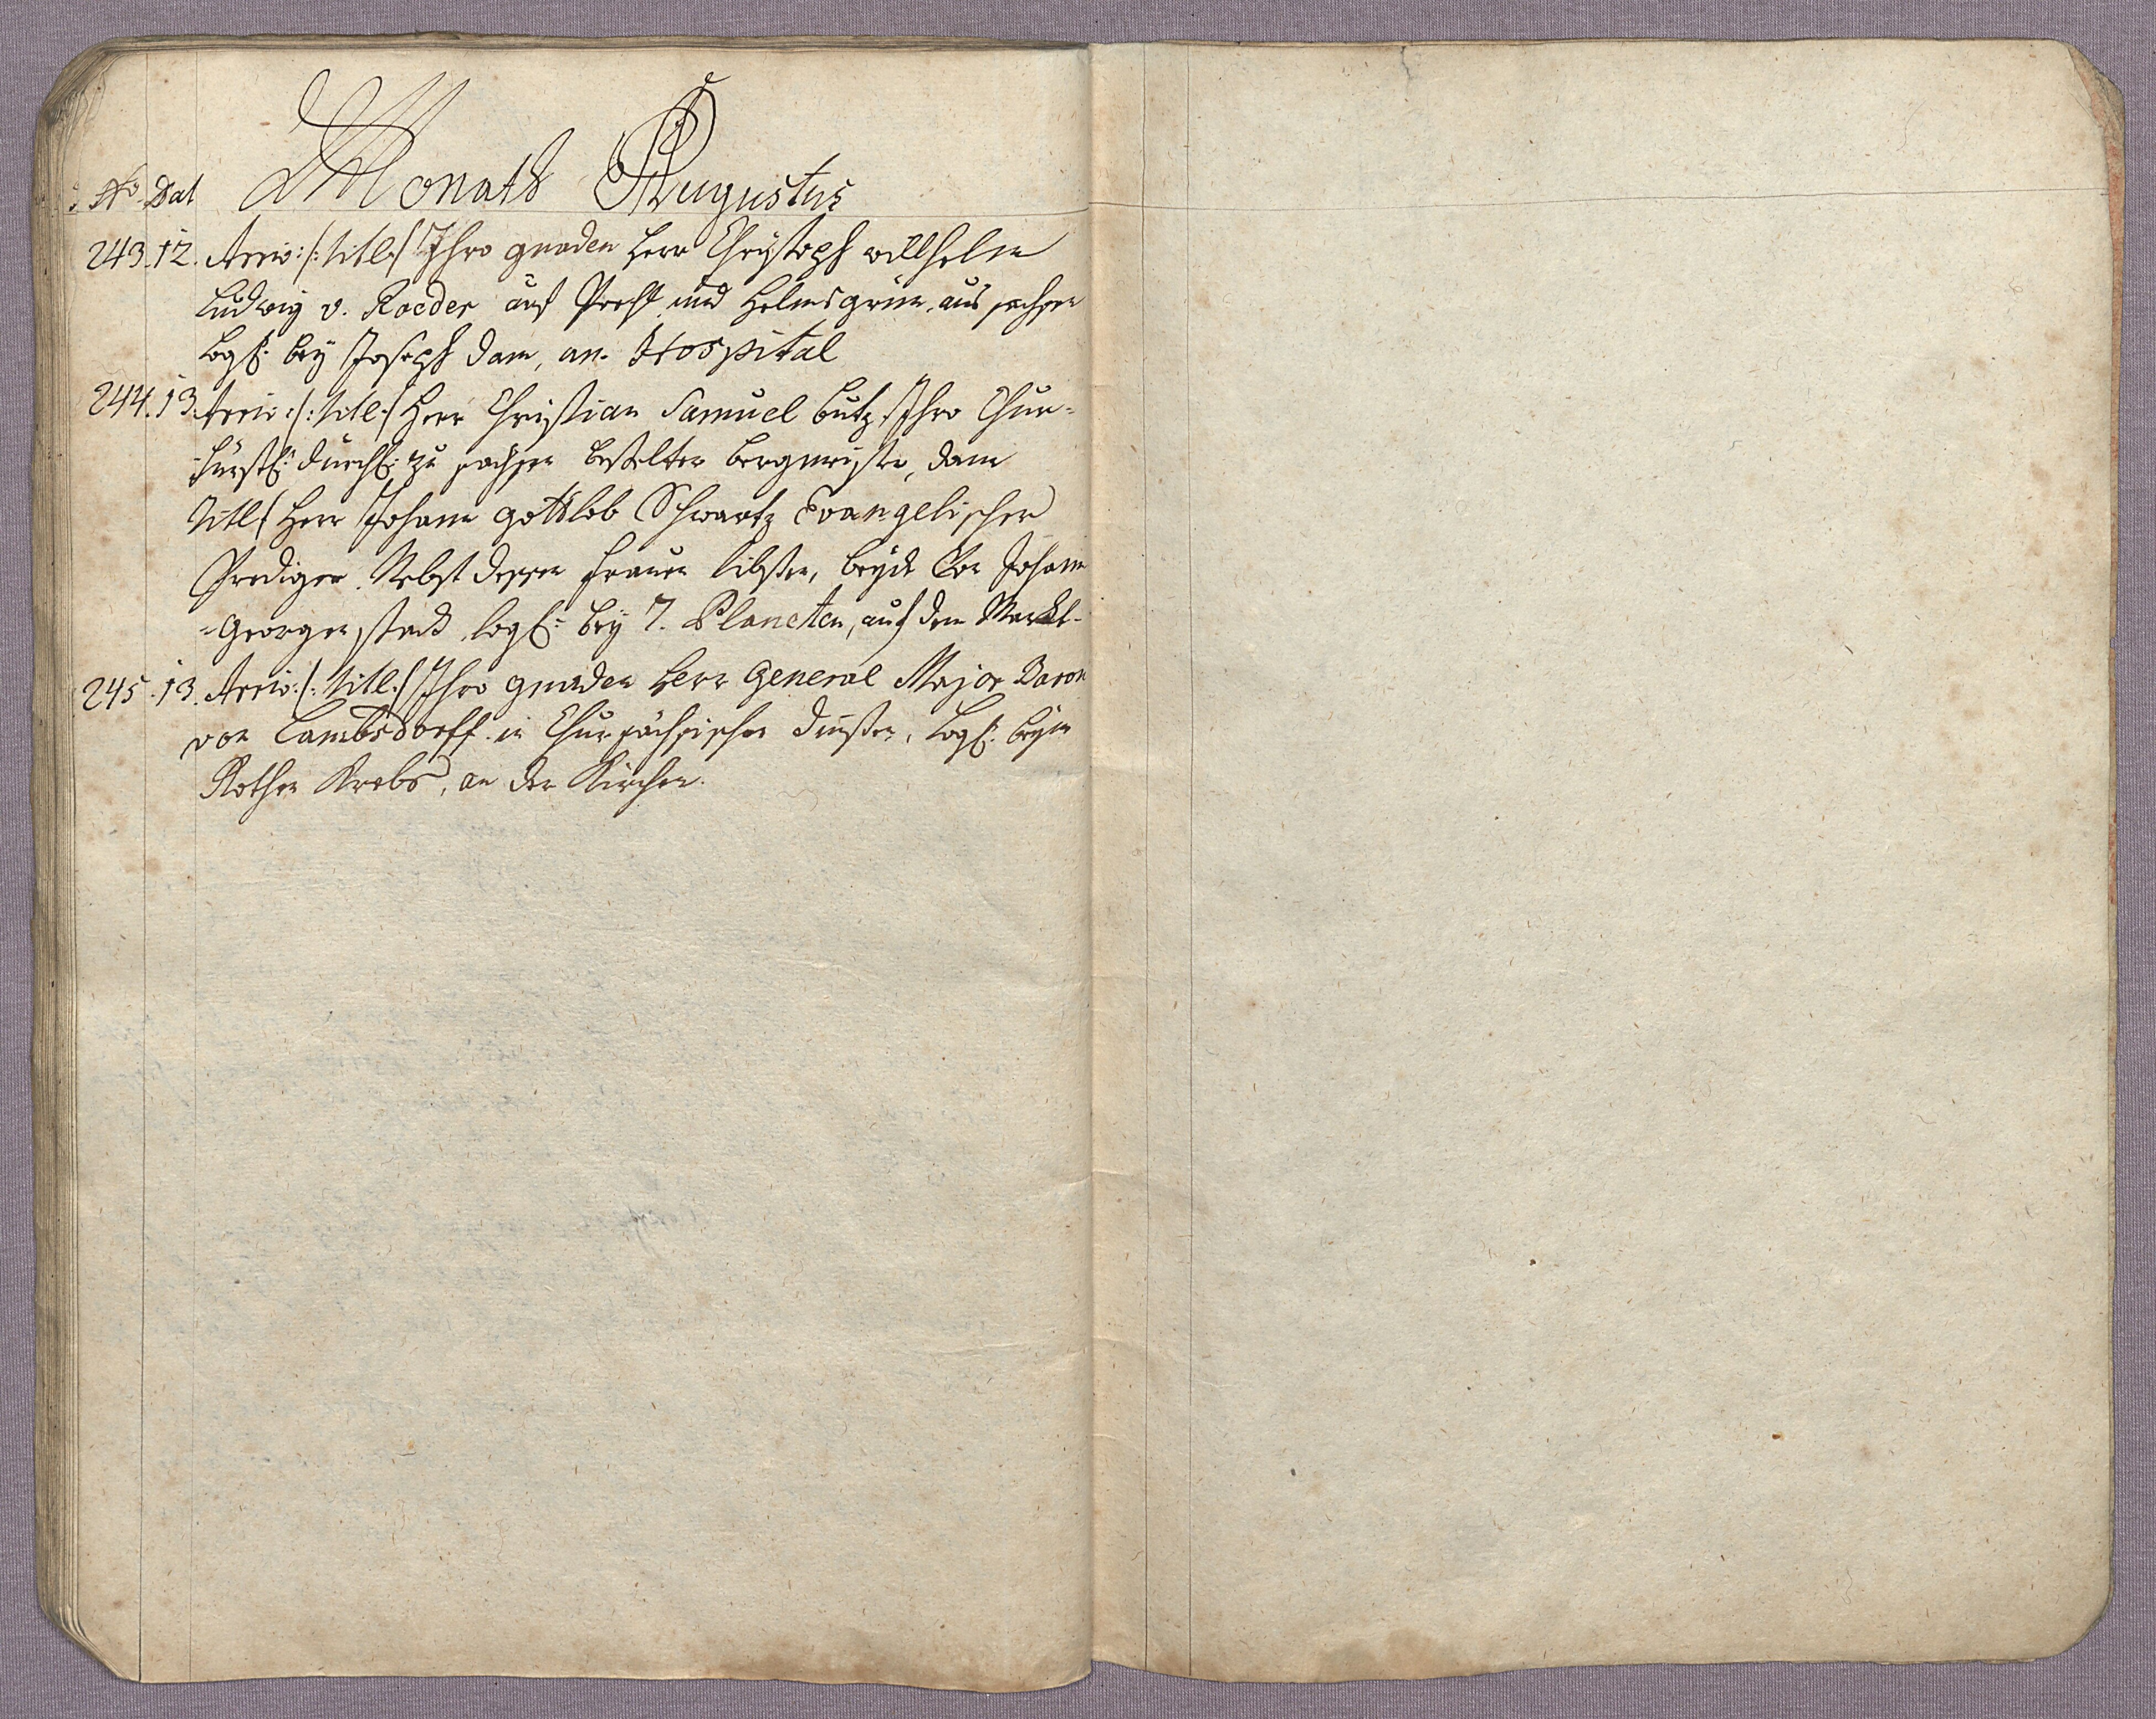 No. Dat Monath Augustus
243. 12. Arriv: /: titl :/ Ihro gnaden Herr Christoph willhelm
Ludwig v. Roeder auf Pöhl und Helmsgrün, aus sachsen
Logh: bey Joseph Dam, an Hospital
244. 13. Arriv: /: titl :/ Herr Christian Samuel Butz, Ihro Chur=
fürstl: Durchl: zu sachsen bestelter bergmeister, dann
titl/ Herr Johann gottlob Schwartz Evangelischer
Prediger Nebst dessen frauen libsten, beyde von Johann
=Georgenstadt, logh: bey 7. Planeten, auf dem Markt.
245. 13. Arriv: /: titl :/ Ihro gnaden Herr General Major Baron
von Lambsdorff in Chursächsischen Dinsten, Logh: beym
Rothen Krebs, an der Kirchen.